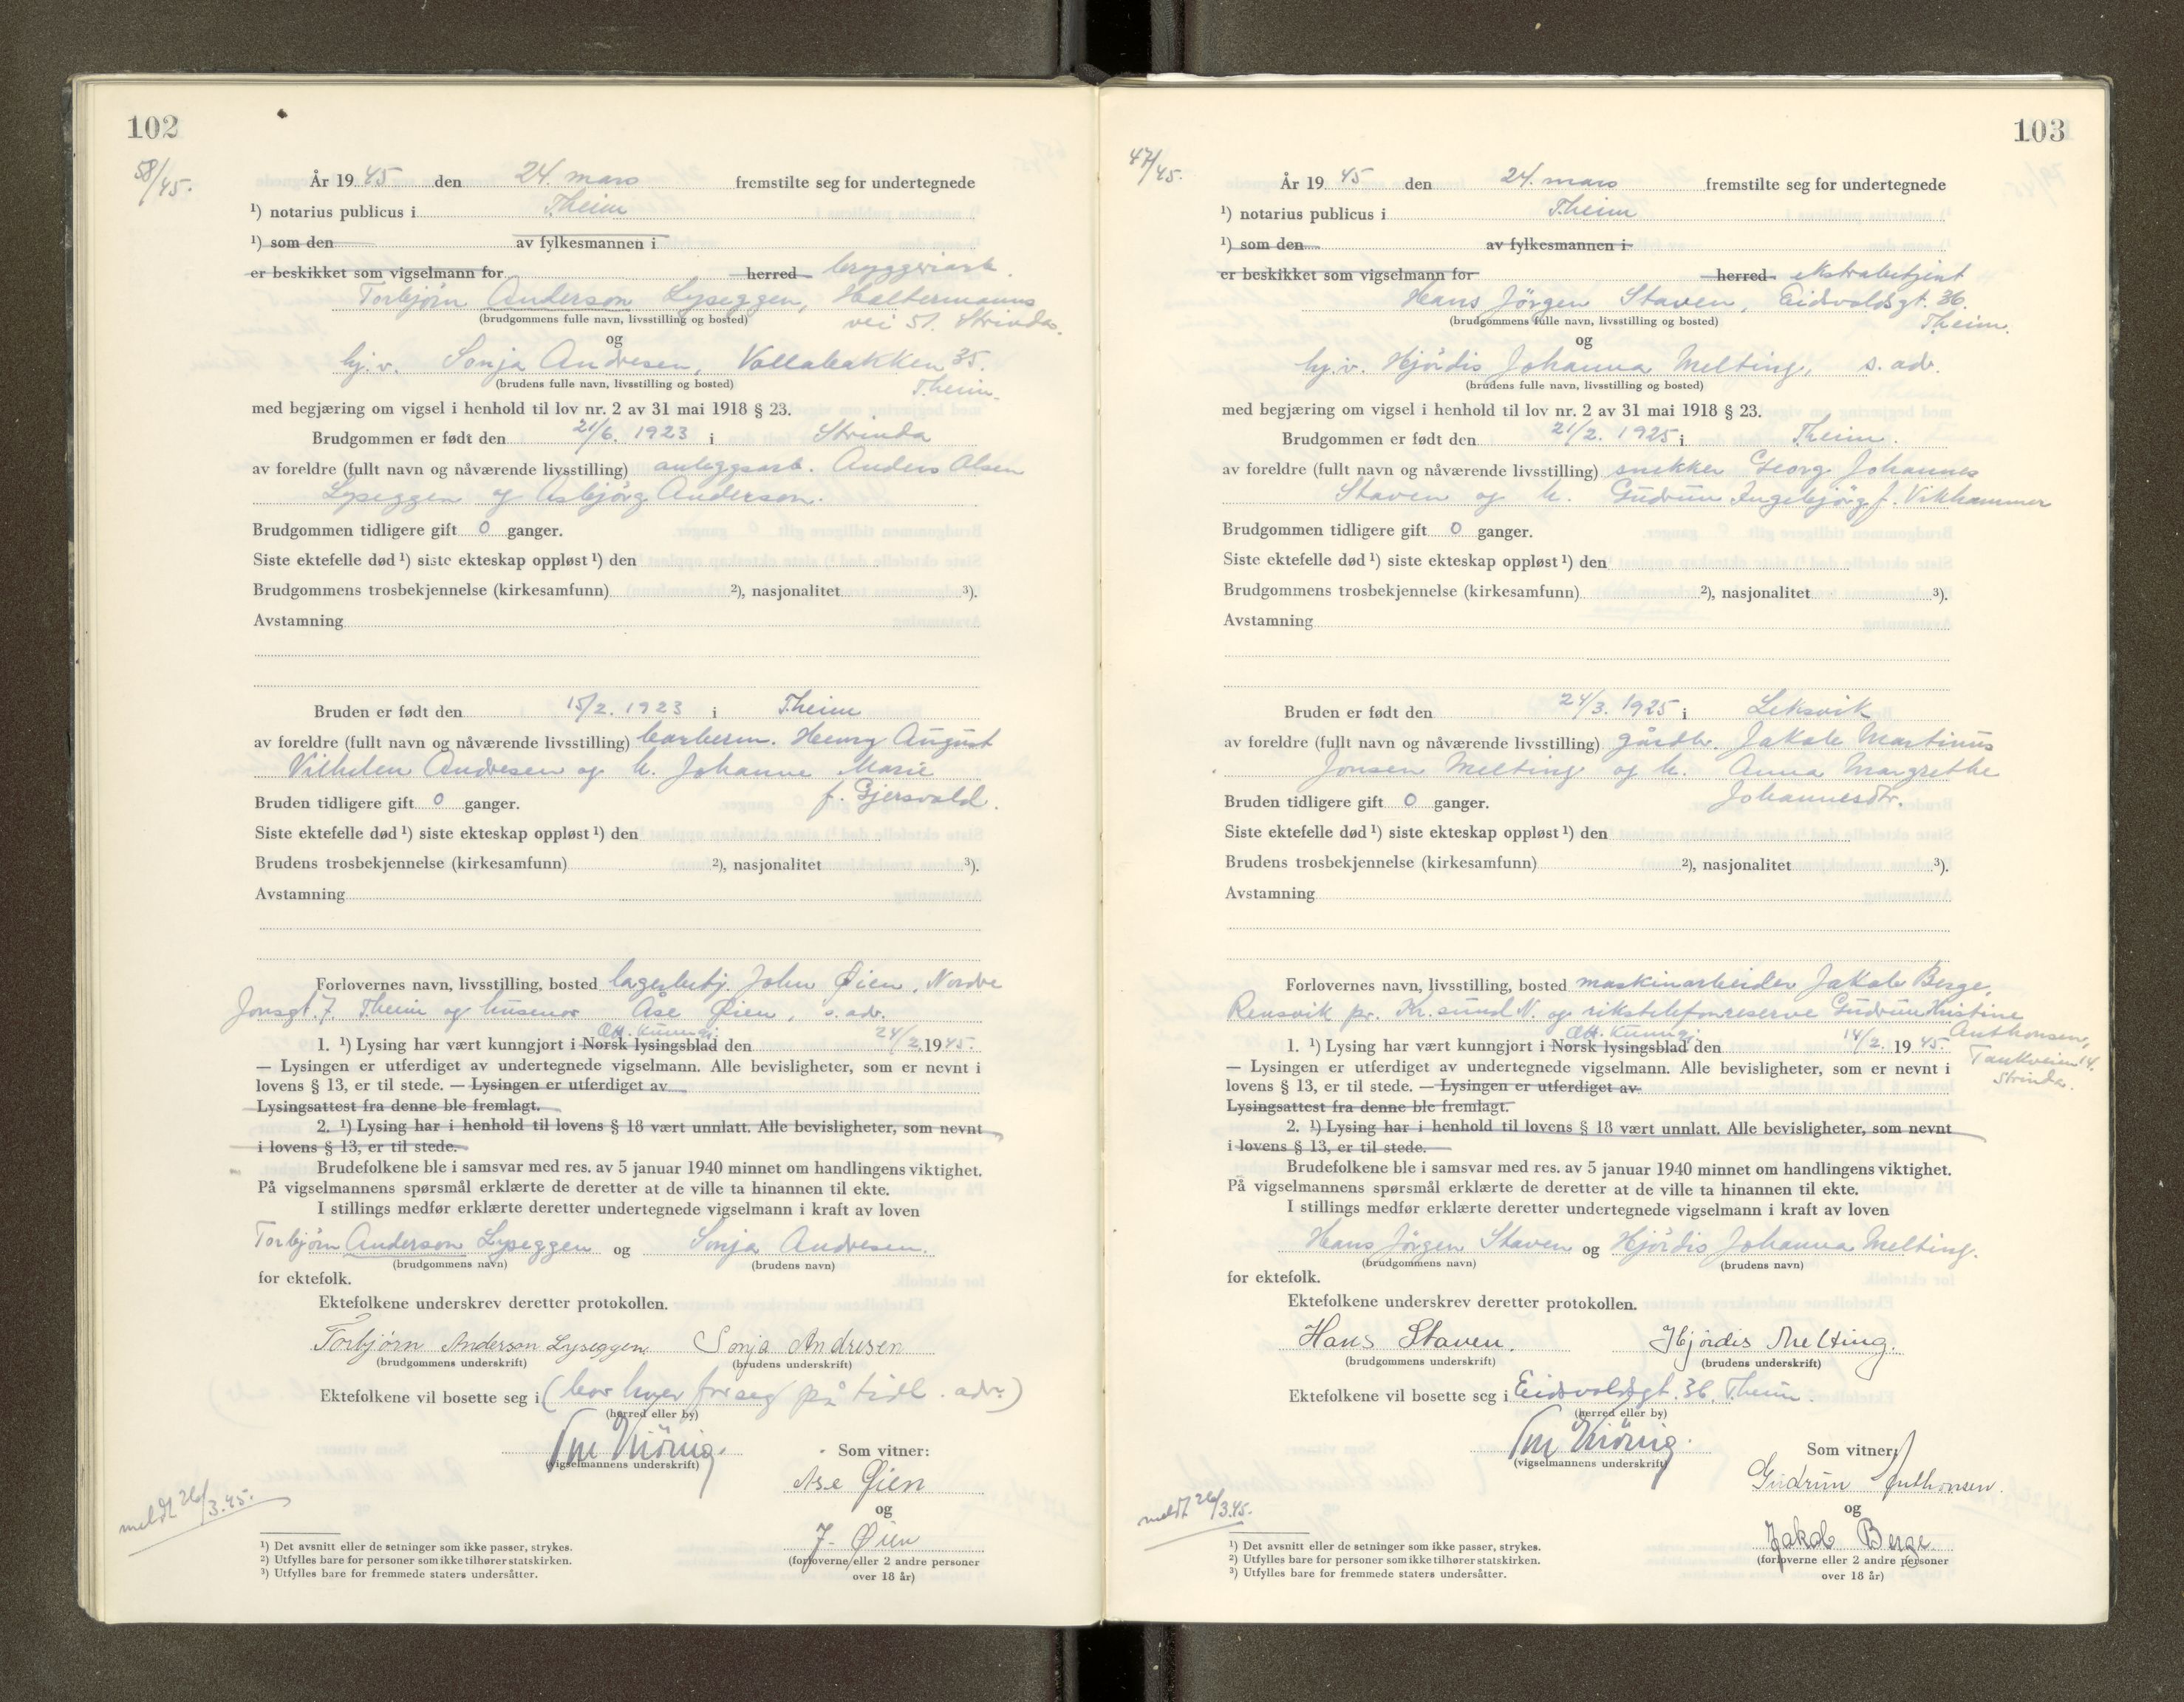 102
58/45.
År 19 45 den 24. mars fremstilte seg for undertegnede
¹) notarius publicus i T.heim
¹) som den av fylkesmannen i
er beskikket som vigselmann for herred bryggeriarb.
Torbjörn Anderson Lyseggen, Haltermanns
(brudgommens fulle navn, livsstilling og bosted) vei 51. Strinda.
og
hj.v. Sonja Andresen, Vollabakken 35.
(brudens fulle navn, livsstilling og bosted) T.heim.
med begjæring om vigsel i henhold til lov nr. 2 av 31 mai 1918 § 23.
Brudgommen er født den 21/6. 1923 i Strinda
av foreldre (fullt navn og nåværende livsstilling) anleggsarb. Anders Olsen
Lyseggen og Asbjörg Anderson.
Brudgommen tidligere gift 0 ganger.
Siste ektefelle død ¹) siste ekteskap oppløst ¹) den
Brudgommens trosbekjennelse (kirkesamfunn) ²), nasjonalitet ³).
Avstamning
Bruden er født den 15/2. 1923 i T.heim
av foreldre (fullt navn og nåværende livsstilling) barberm. Henry August
Vilhelm Andresen og h. Johanne Marie
f. Gjersvold.
Bruden tidligere gift 0 ganger.
Siste ektefelle død ¹) siste ekteskap oppløst ¹) den
Brudens trosbekjennelse (kirkesamfunn) ²), nasjonalitet ³).
Avstamning
Forlovernes navn, livsstilling, bosted lagerbetj. John Øien, Nordre
Jonsgt. 7. T.heim og husmor Åse Øien, s. adr.
Off. kunngj.
1. ¹) Lysing har vært kunngjort i Norsk lysingsblad den 24/2. 1945.
— Lysingen er utferdiget av undertegnede vigselmann. Alle bevisligheter, som er nevnt i
lovens § 13, er til stede. — Lysingen er utferdiget av
Lysingsattest fra denne ble fremlagt.
2. ¹) Lysing har i henhold til lovens § 18 vært unnlatt. Alle bevisligheter, som nevnt
i lovens § 13, er til stede.
Brudefolkene ble i samsvar med res. av 5 januar 1940 minnet om handlingens viktighet.
På vigselmannens spørsmål erklærte de deretter at de ville ta hinannen til ekte.
I stillings medfør erklærte deretter undertegnede vigselmann i kraft av loven
Torbjörn Anderson Lyseggen og Sonja Andresen.
(brudgommens navn) (brudens navn)
for ektefolk.
Ektefolkene underskrev deretter protokollen.
Torbjørn Anderson Lyseggen. Sonja Andresen
(brudgommens underskrift) (brudens underskrift)
Ektefolkene vil bosette seg i (bor hver for seg på tidl. adr.)
(herred eller by)
(vigselmannens underskrift)
Som vitner:
Åse Øien
og
J. Øien
(forloverne eller 2 andre personer
over 18 år)
meldt 26/3.45.
¹) Det avsnitt eller de setninger som ikke passer, strykes.
²) Utfylles bare for personer som ikke tilhører statskirken.
³) Utfylles bare for fremmede staters undersåtter.
103
47/45.
År 19 45 den 24. mars fremstilte seg for undertegnede
¹) notarius publicus i T.heim
¹) som den av fylkesmannen i
er beskikket som vigselmann for herred ekstrabetjent
Hans Jörgen Staven, Eidsvoldsgt. 36.
(brudgommens fulle navn, livsstilling og bosted) T.heim.
og
hj.v. Hjördis Johanna Melting, s. adr.
(brudens fulle navn, livsstilling og bosted)
med begjæring om vigsel i henhold til lov nr. 2 av 31 mai 1918 § 23.
Brudgommen er født den 21/2. 1925 i T.heim.
av foreldre (fullt navn og nåværende livsstilling) snekker Georg Johannes
Staven og h. Gudrun Ingebjörg f. Vikhammer
Brudgommen tidligere gift 0 ganger.
Siste ektefelle død ¹) siste ekteskap oppløst ¹) den
Brudgommens trosbekjennelse (kirkesamfunn) ²), nasjonalitet ³).
Avstamning
Bruden er født den 24/3. 1925 i Leksvik
av foreldre (fullt navn og nåværende livsstilling) gårdbr. Jakob Martinus
Jonsen Melting og h. Anna Margrethe
Johannesdtr.
Bruden tidligere gift 0 ganger.
Siste ektefelle død ¹) siste ekteskap oppløst ¹) den
Brudens trosbekjennelse (kirkesamfunn) ²), nasjonalitet ³).
Avstamning
Forlovernes navn, livsstilling, bosted maskinarbeider Jakob Berge,
Rensvik pr. Kr.sund N. og rikstelefonreserve Gudrun Kristine
Anthonsen,
Tankveien 14.
Strinda.
Off. kunngj.
1. ¹) Lysing har vært kunngjort i Norsk lysingsblad den 14/2. 1945.
— Lysingen er utferdiget av undertegnede vigselmann. Alle bevisligheter, som er nevnt i
lovens § 13, er til stede. — Lysingen er utferdiget av
Lysingsattest fra denne ble fremlagt.
2. ¹) Lysing har i henhold til lovens § 18 vært unnlatt. Alle bevisligheter, som nevnt
i lovens § 13, er til stede.
Brudefolkene ble i samsvar med res. av 5 januar 1940 minnet om handlingens viktighet.
På vigselmannens spørsmål erklærte de deretter at de ville ta hinannen til ekte.
I stillings medfør erklærte deretter undertegnede vigselmann i kraft av loven
Hans Jörgen Staven og Hjördis Johanna Melting.
(brudgommens navn) (brudens navn)
for ektefolk.
Ektefolkene underskrev deretter protokollen.
Hans Staven. Hjördis Melting.
(brudgommens underskrift) (brudens underskrift)
Ektefolkene vil bosette seg i Eidsvoldsgt. 36, T.heim.
(herred eller by)
(vigselmannens underskrift)
Som vitner:
Gudrun Anthonsen.
og
Jakob Berge.
(forloverne eller 2 andre personer
over 18 år)
meldt 26/3.45.
¹) Det avsnitt eller de setninger som ikke passer, strykes.
²) Utfylles bare for personer som ikke tilhører statskirken.
³) Utfylles bare for fremmede staters undersåtter.